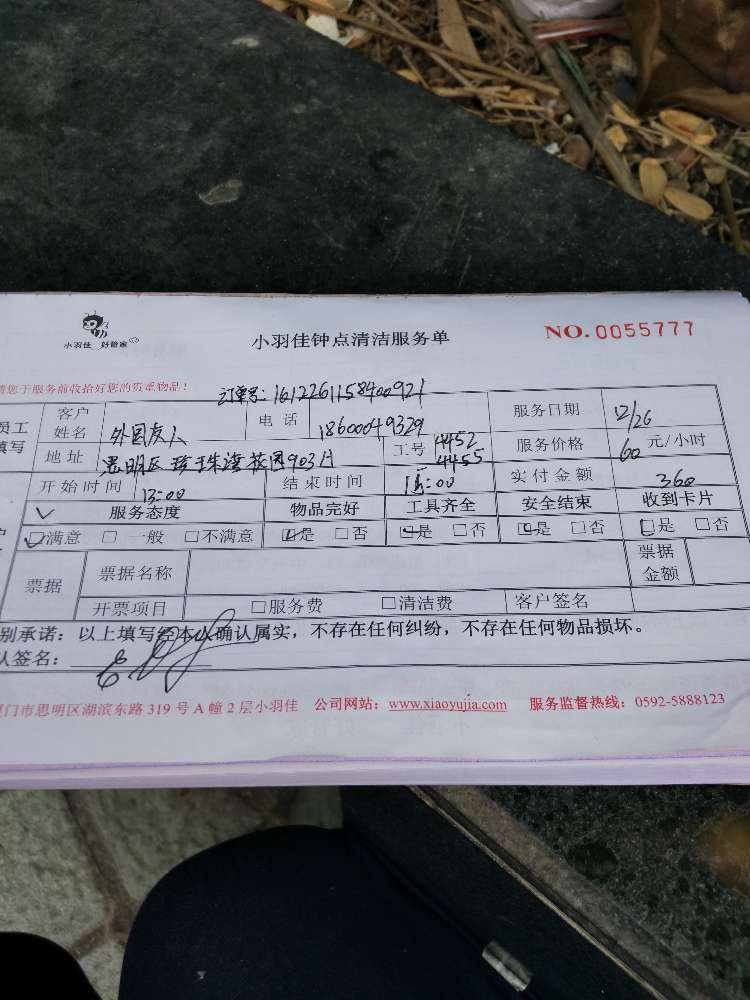 小羽佳 好管家
小羽佳钟点清洁服务单
NO.0055777
请您于服务前收拾好您的贵重物品!
订单号: 1612261158400921
员工填写
客户姓名 外国友人 电话 18600049329 服务日期 12/26
地址 思明区 珍珠湾花园903片 工号 4452 4455 服务价格 60 元/小时
开始时间 13:00 结束时间 16:00 实付金额 360
服务态度 物品完好 工具齐全 安全结束 收到卡片
☑满意 □一般 □不满意 ☑是 □否 ☑是 □否 ☑是 □否 ☑是 □否
票据 票据名称 票据金额
开票项目 □服务费 □清洁费 客户签名
别承诺：以上填写经本人确认属实，不存在任何纠纷，不存在任何物品损坏。
人签名：
厦门市思明区湖滨东路 319 号 A 幢 2 层小羽佳 公司网站：www.xiaoyujia.com 服务监督热线：0592-5888123